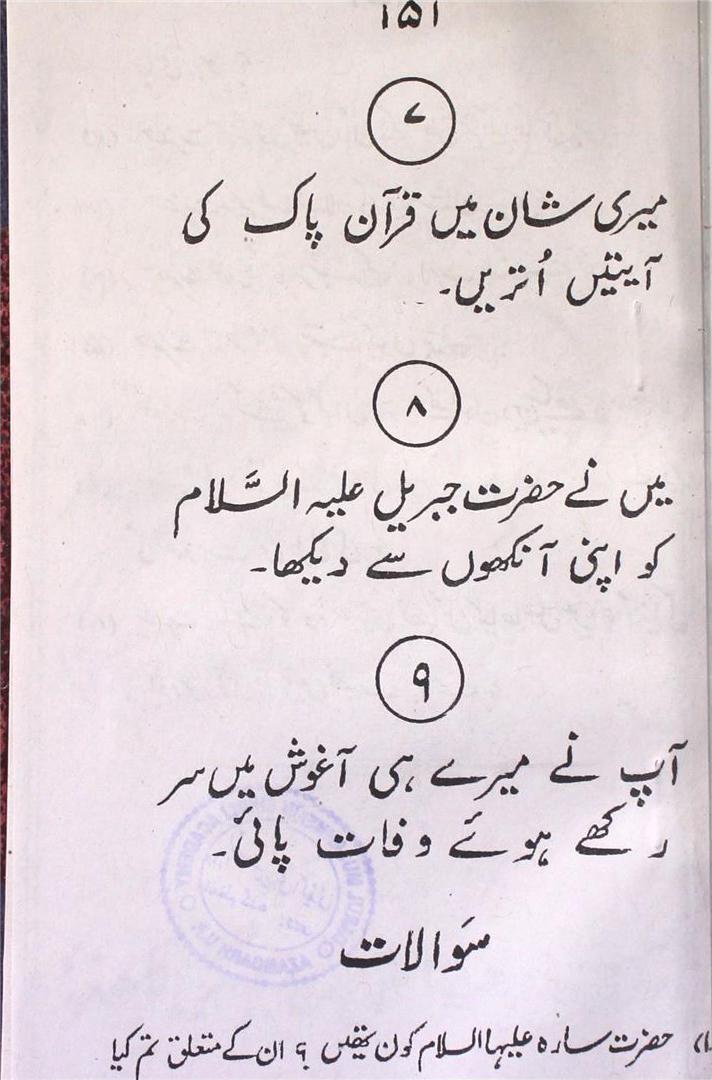 ۱۵۱
۷
میری شان میں قرآن پاک کی
آیتیں اُتریں۔
۸
میں نے حضرت جبریل علیہ السَّلام
کو اپنی آنکھوں سے دیکھا۔
۹
آپ نے میرے ہی آغوش میں سر
رکھے ہوئے وفات پائی۔
سَوالات
(۱) حضرت سارہ علیہا السلام کون تھیں ؟ ان کے متعلق تم کیا